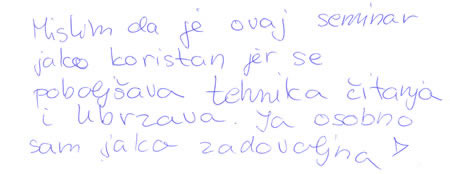 Mislim da je ovaj seminar
jako koristan jer se
poboljšava tehnika čitanja
i ubrzava. Ja osobno
sam jako zadovoljna